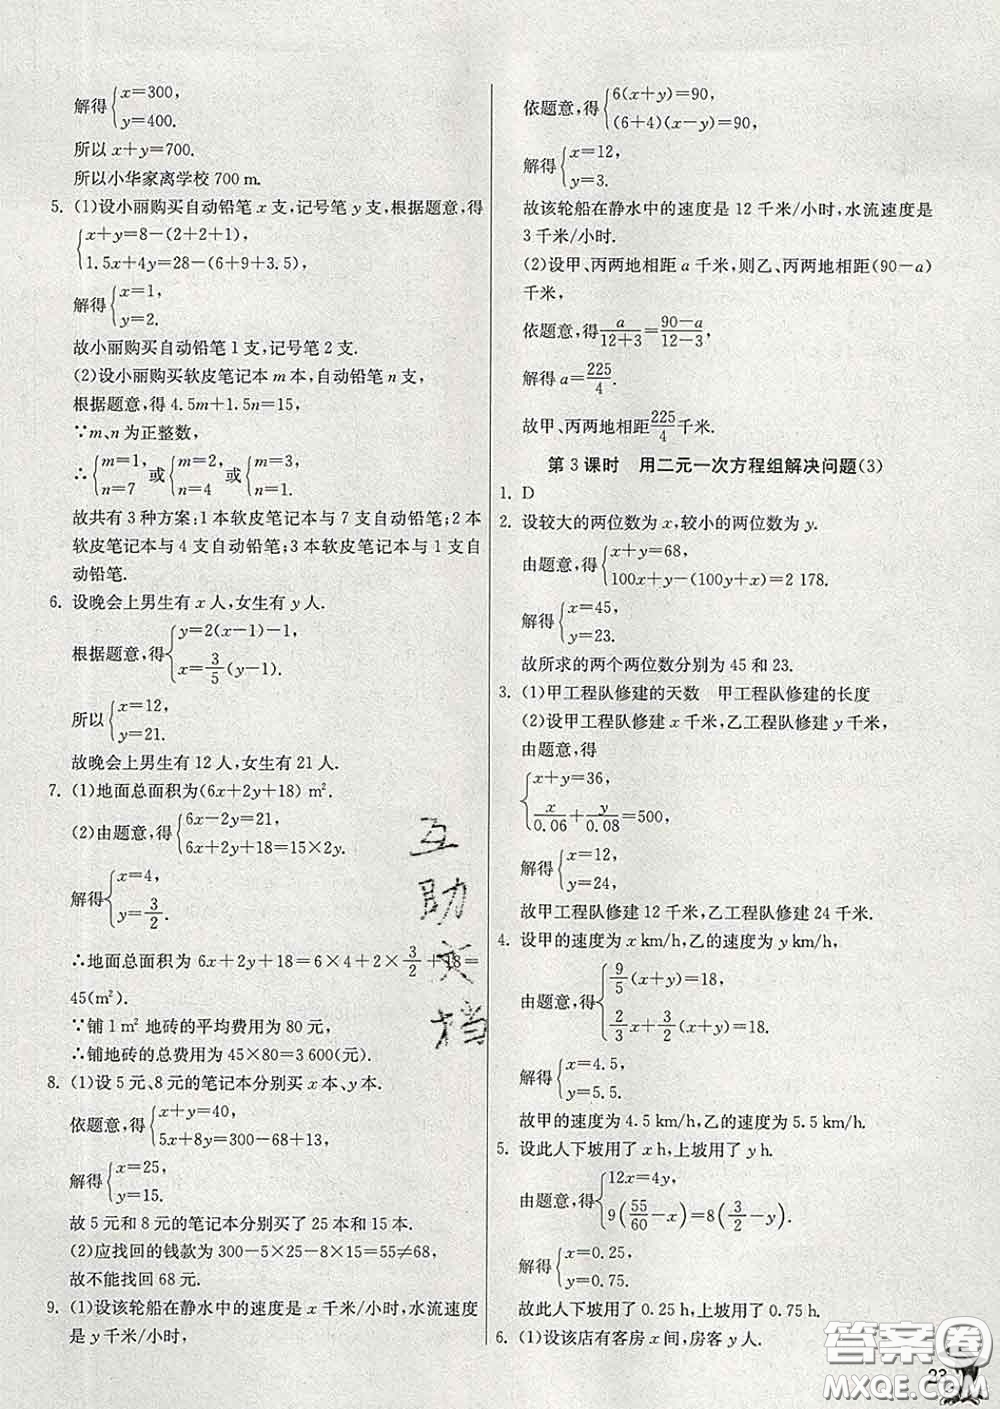 解得{x=300,
y=400.
所以 x+y=700.
所以小华家离学校 700 m.
5. (1)设小丽购买自动铅笔 x 支,记号笔 y 支,根据题意,得
{x+y=8-(2+2+1),
1.5x+4y=28-(6+9+3.5),
解得{x=1,
y=2.
故小丽购买自动铅笔 1 支,记号笔 2 支.
(2)设小丽购买软皮笔记本 m 本,自动铅笔 n 支,
根据题意,得 4.5m+1.5n=15,
∵m、n 为正整数,
∴{m=1, n=7 或{m=2, n=4 或{m=3, n=1.
故共有 3 种方案:1 本软皮笔记本与 7 支自动铅笔;2 本
软皮笔记本与 4 支自动铅笔;3 本软皮笔记本与 1 支自
动铅笔.
6. 设晚会上男生有 x 人,女生有 y 人.
根据题意,得{y=2(x-1)-1,
x=3/5(y-1).
所以{x=12,
y=21.
故晚会上男生有 12 人,女生有 21 人.
7. (1)地面总面积为(6x+2y+18) m².
(2)由题意,得{6x-2y=21,
6x+2y+18=15×2y.
解得{x=4,
y=3/2.
∴地面总面积为 6x+2y+18=6×4+2×3/2+18=
45(m²).
∵铺 1 m² 地砖的平均费用为 80 元,
∴铺地砖的总费用为 45×80=3 600(元).
8. (1)设 5 元、8 元的笔记本分别买 x 本、y 本.
依题意,得{x+y=40,
5x+8y=300-68+13,
解得{x=25,
y=15.
故 5 元和 8 元的笔记本分别买了 25 本和 15 本.
(2)应找回的钱款为 300-5×25-8×15=55≠68,
故不能找回 68 元.
9. (1)设该轮船在静水中的速度是 x 千米/小时,水流速度
是 y 千米/小时,
依题意,得{6(x+y)=90,
(6+4)(x-y)=90,
解得{x=12,
y=3.
故该轮船在静水中的速度是 12 千米/小时,水流速度是
3 千米/小时.
(2)设甲、丙两地相距 a 千米,则乙、丙两地相距(90-a)
千米,
依题意,得 a/(12+3)=(90-a)/(12-3),
解得 a=225/4.
故甲、丙两地相距225/4千米.
第 3 课时 用二元一次方程组解决问题(3)
1. D
2. 设较大的两位数为 x,较小的两位数为 y.
由题意,得{x+y=68,
100x+y-(100y+x)=2 178.
解得{x=45,
y=23.
故所求的两个两位数分别为 45 和 23.
3. (1)甲工程队修建的天数 甲工程队修建的长度
(2)设甲工程队修建 x 千米,乙工程队修建 y 千米,
由题意,得
{x+y=36,
x/0.06+y/0.08=500,
解得{x=12,
y=24,
故甲工程队修建 12 千米,乙工程队修建 24 千米.
4. 设甲的速度为 x km/h,乙的速度为 y km/h,
由题意,得{9/5(x+y)=18,
2/3x+3/2(x+y)=18.
解得{x=4.5,
y=5.5.
故甲的速度为 4.5 km/h,乙的速度为 5.5 km/h.
5. 设此人下坡用了 x h,上坡用了 y h.
由题意,得{12x=4y,
9(55/60-x)=8(3/2-y).
解得{x=0.25,
y=0.75.
故此人下坡用了 0.25 h,上坡用了 0.75 h.
6. (1)设该店有客房 x 间,房客 y 人.
互
助
文
档
答案圈
MXQE.COM